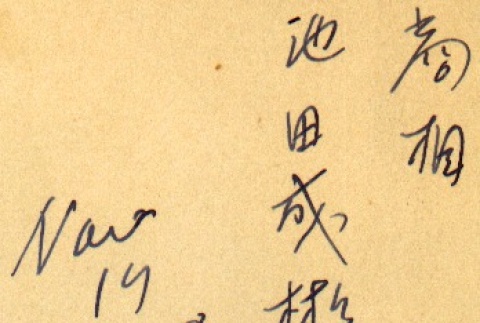 商相
池田成彬
Nov
19